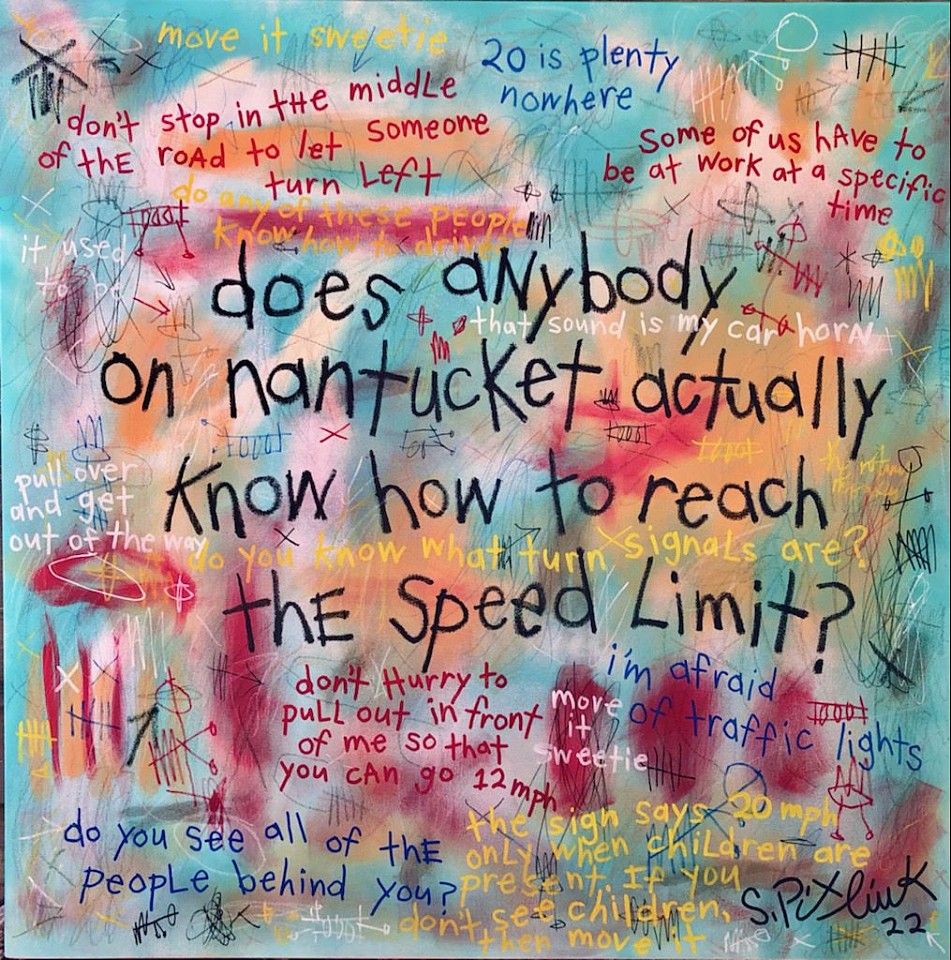 move it sweetie
20 is plenty
nowhere
don't stop in tHe middLe
of thE roAd to let someone
turn Left
Some of us hAve to
be at work at a specific
time
do any of these people
Know how to drive
it used
to be
does aNybody
that sound is my car horn
on nantucKet actually
Know how to reach
pull over
and get
out of the way
do you know what turn signaLs are?
thE Speed Limit?
i'm afraid
of traffic lights
don't Hurry to
puLL out in front
of me so that
you cAn go 12 mph
move
it
sweetie
the sign says 20 mph
onLy when chiLdren are
present. If you
don't see children,
then move it
do you see all of thE
peopLe behind you?
S. PiXliuK
22